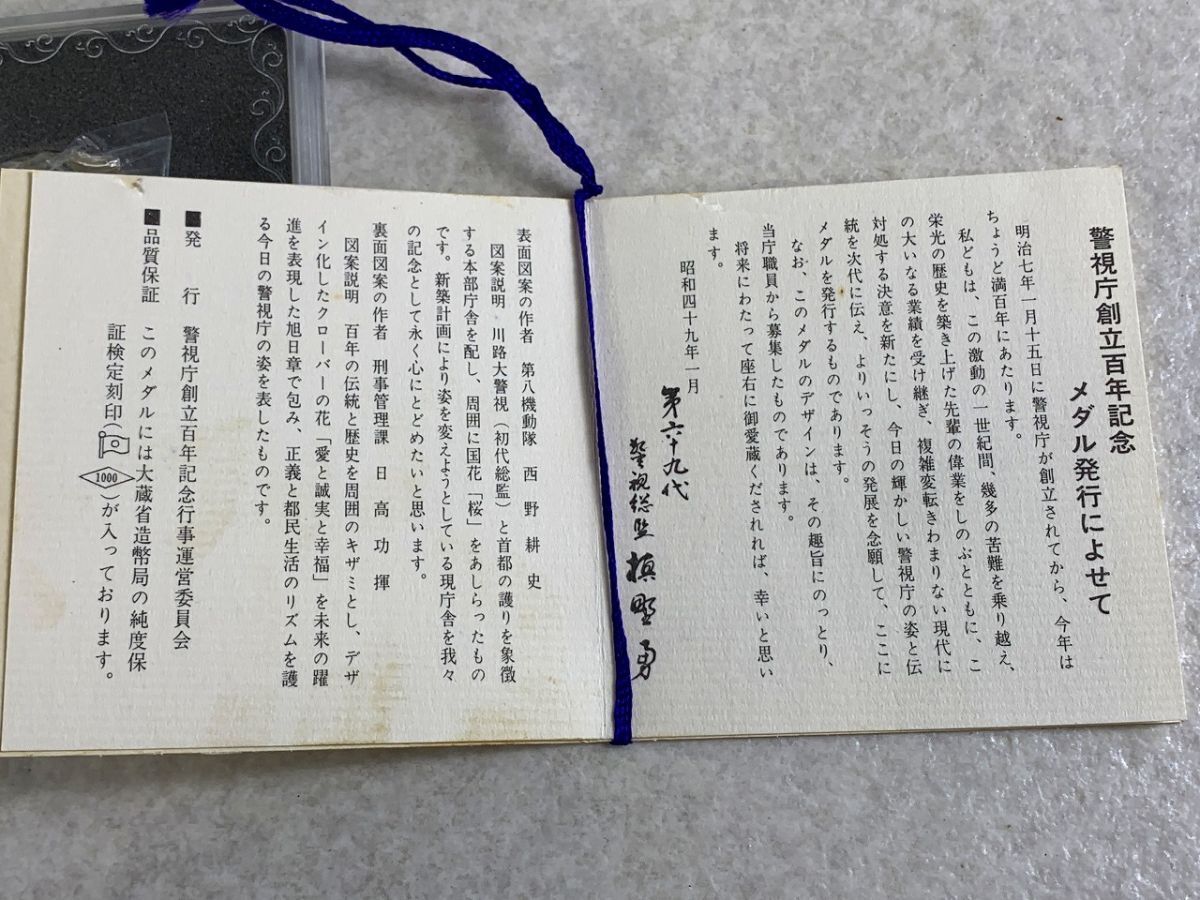 警視庁創立百年記念
メダル発行によせて
明治七年一月十五日に警視庁が創立されてから、今年は
ちょうど満百年にあたります。
私どもは、この激動の一世紀間、幾多の苦難を乗り越え、
栄光の歴史を築き上げた先輩の偉業をしのぶとともに、こ
の大いなる業績を受け継ぎ、複雑変転きわまりない現代に
対処する決意を新たにし、今日の輝かしい警視庁の姿と伝
統を次代に伝え、よりいっそうの発展を念願して、ここに
メダルを発行するものであります。
なお、このメダルのデザインは、その趣旨にのっとり、
当庁職員から募集したものであります。
将来にわたって座右に御愛蔵くだされれば、幸いと思い
ます。
昭和四十九年一月
第六十九代
警視総監 槙野勇
表面図案の作者 第八機動隊 西野耕史
図案説明 川路大警視（初代総監）と首都の護りを象徴
する本部庁舎を配し、周囲に国花「桜」をあしらったもの
です。新築計画により姿を変えようとしている現庁舎を我々
の記念として永く心にとどめたいと思います。
裏面図案の作者 刑事管理課 日高功揮
図案説明 百年の伝統と歴史を周囲のキザミとし、デザ
イン化したクローバーの花「愛と誠実と幸福」を未来の躍
進を表現した旭日章で包み、正義と都民生活のリズムを護
る今日の警視庁の姿を表したものです。
■発行 警視庁創立百年記念行事運営委員会
■品質保証 このメダルには大蔵省造幣局の純度保
証検定刻印（1000）が入っております。